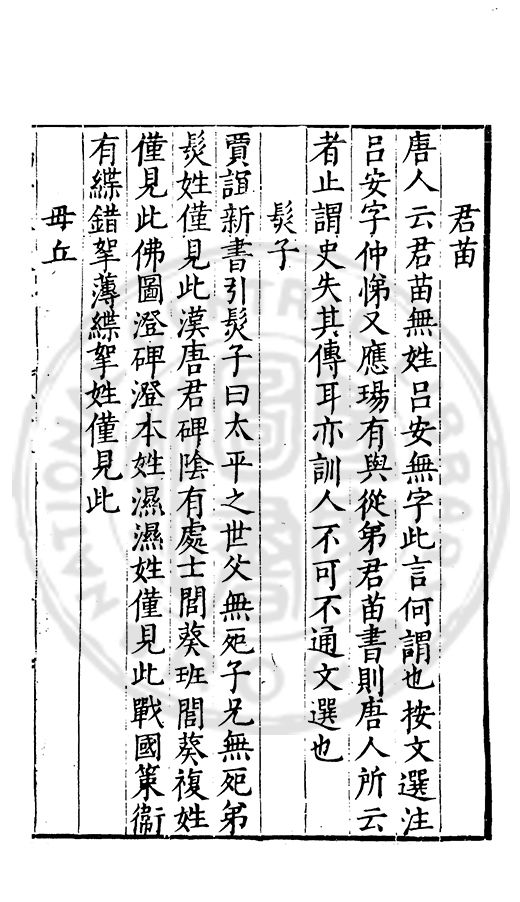 君苗
唐人云君苗無姓吕安無字此言何謂也按文選注
吕安字仲悌又應瑒有與從弟君苗書則唐人所云
者止謂史失其傳耳亦訓人不可不通文選也
髲子
賈誼新書引髲子曰太平之世父無死子兄無死弟
髲姓僅見此漢唐君碑陰有處士閭葵班閭葵複姓
僅見此佛圖澄碑澄本姓濕濕姓僅見此戰國策衞
有緤錯挐薄緤挐姓僅見此
毌丘